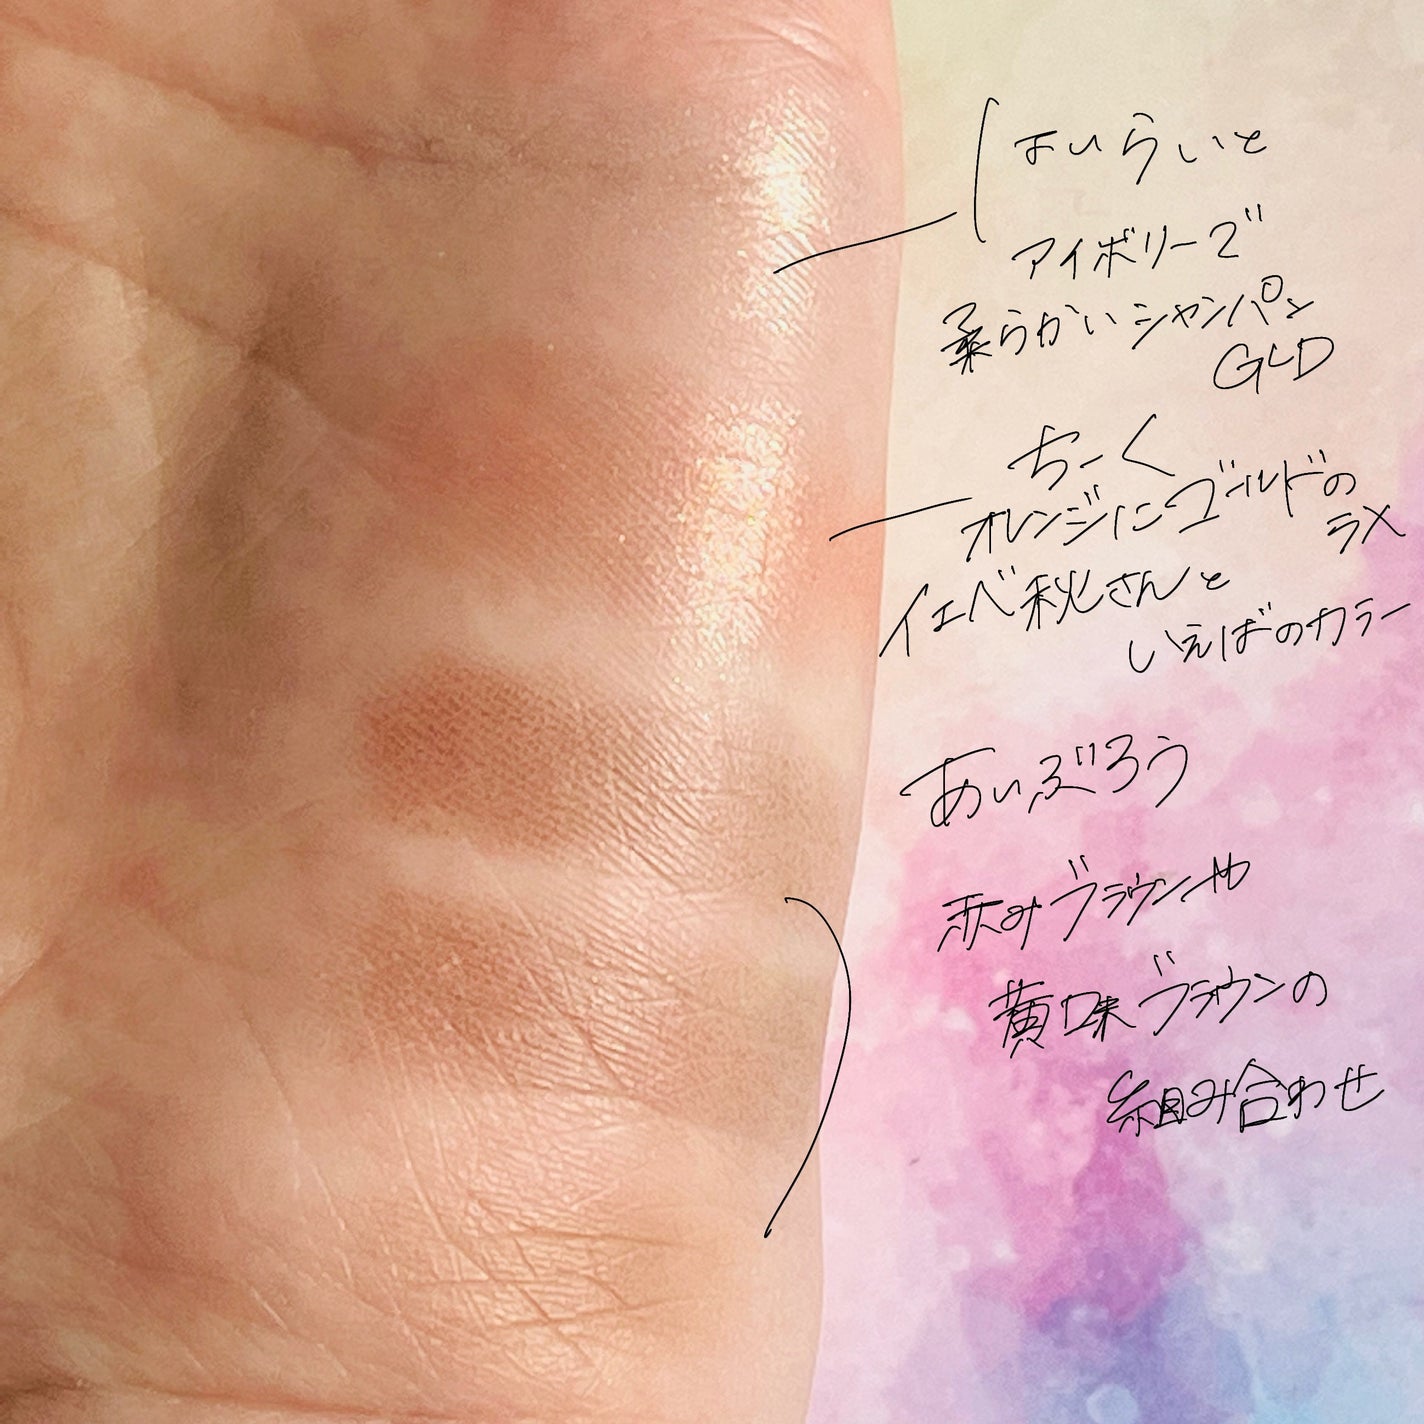 はいらいと
アイボリーで
柔らかいシャンパン
GLD
ちーく
オレンジにゴールドの
ラメ
イエベ秋さんと
いえばのカラー
あいぶろう
赤みブラウンや
黄味ブラウンの
組み合わせ